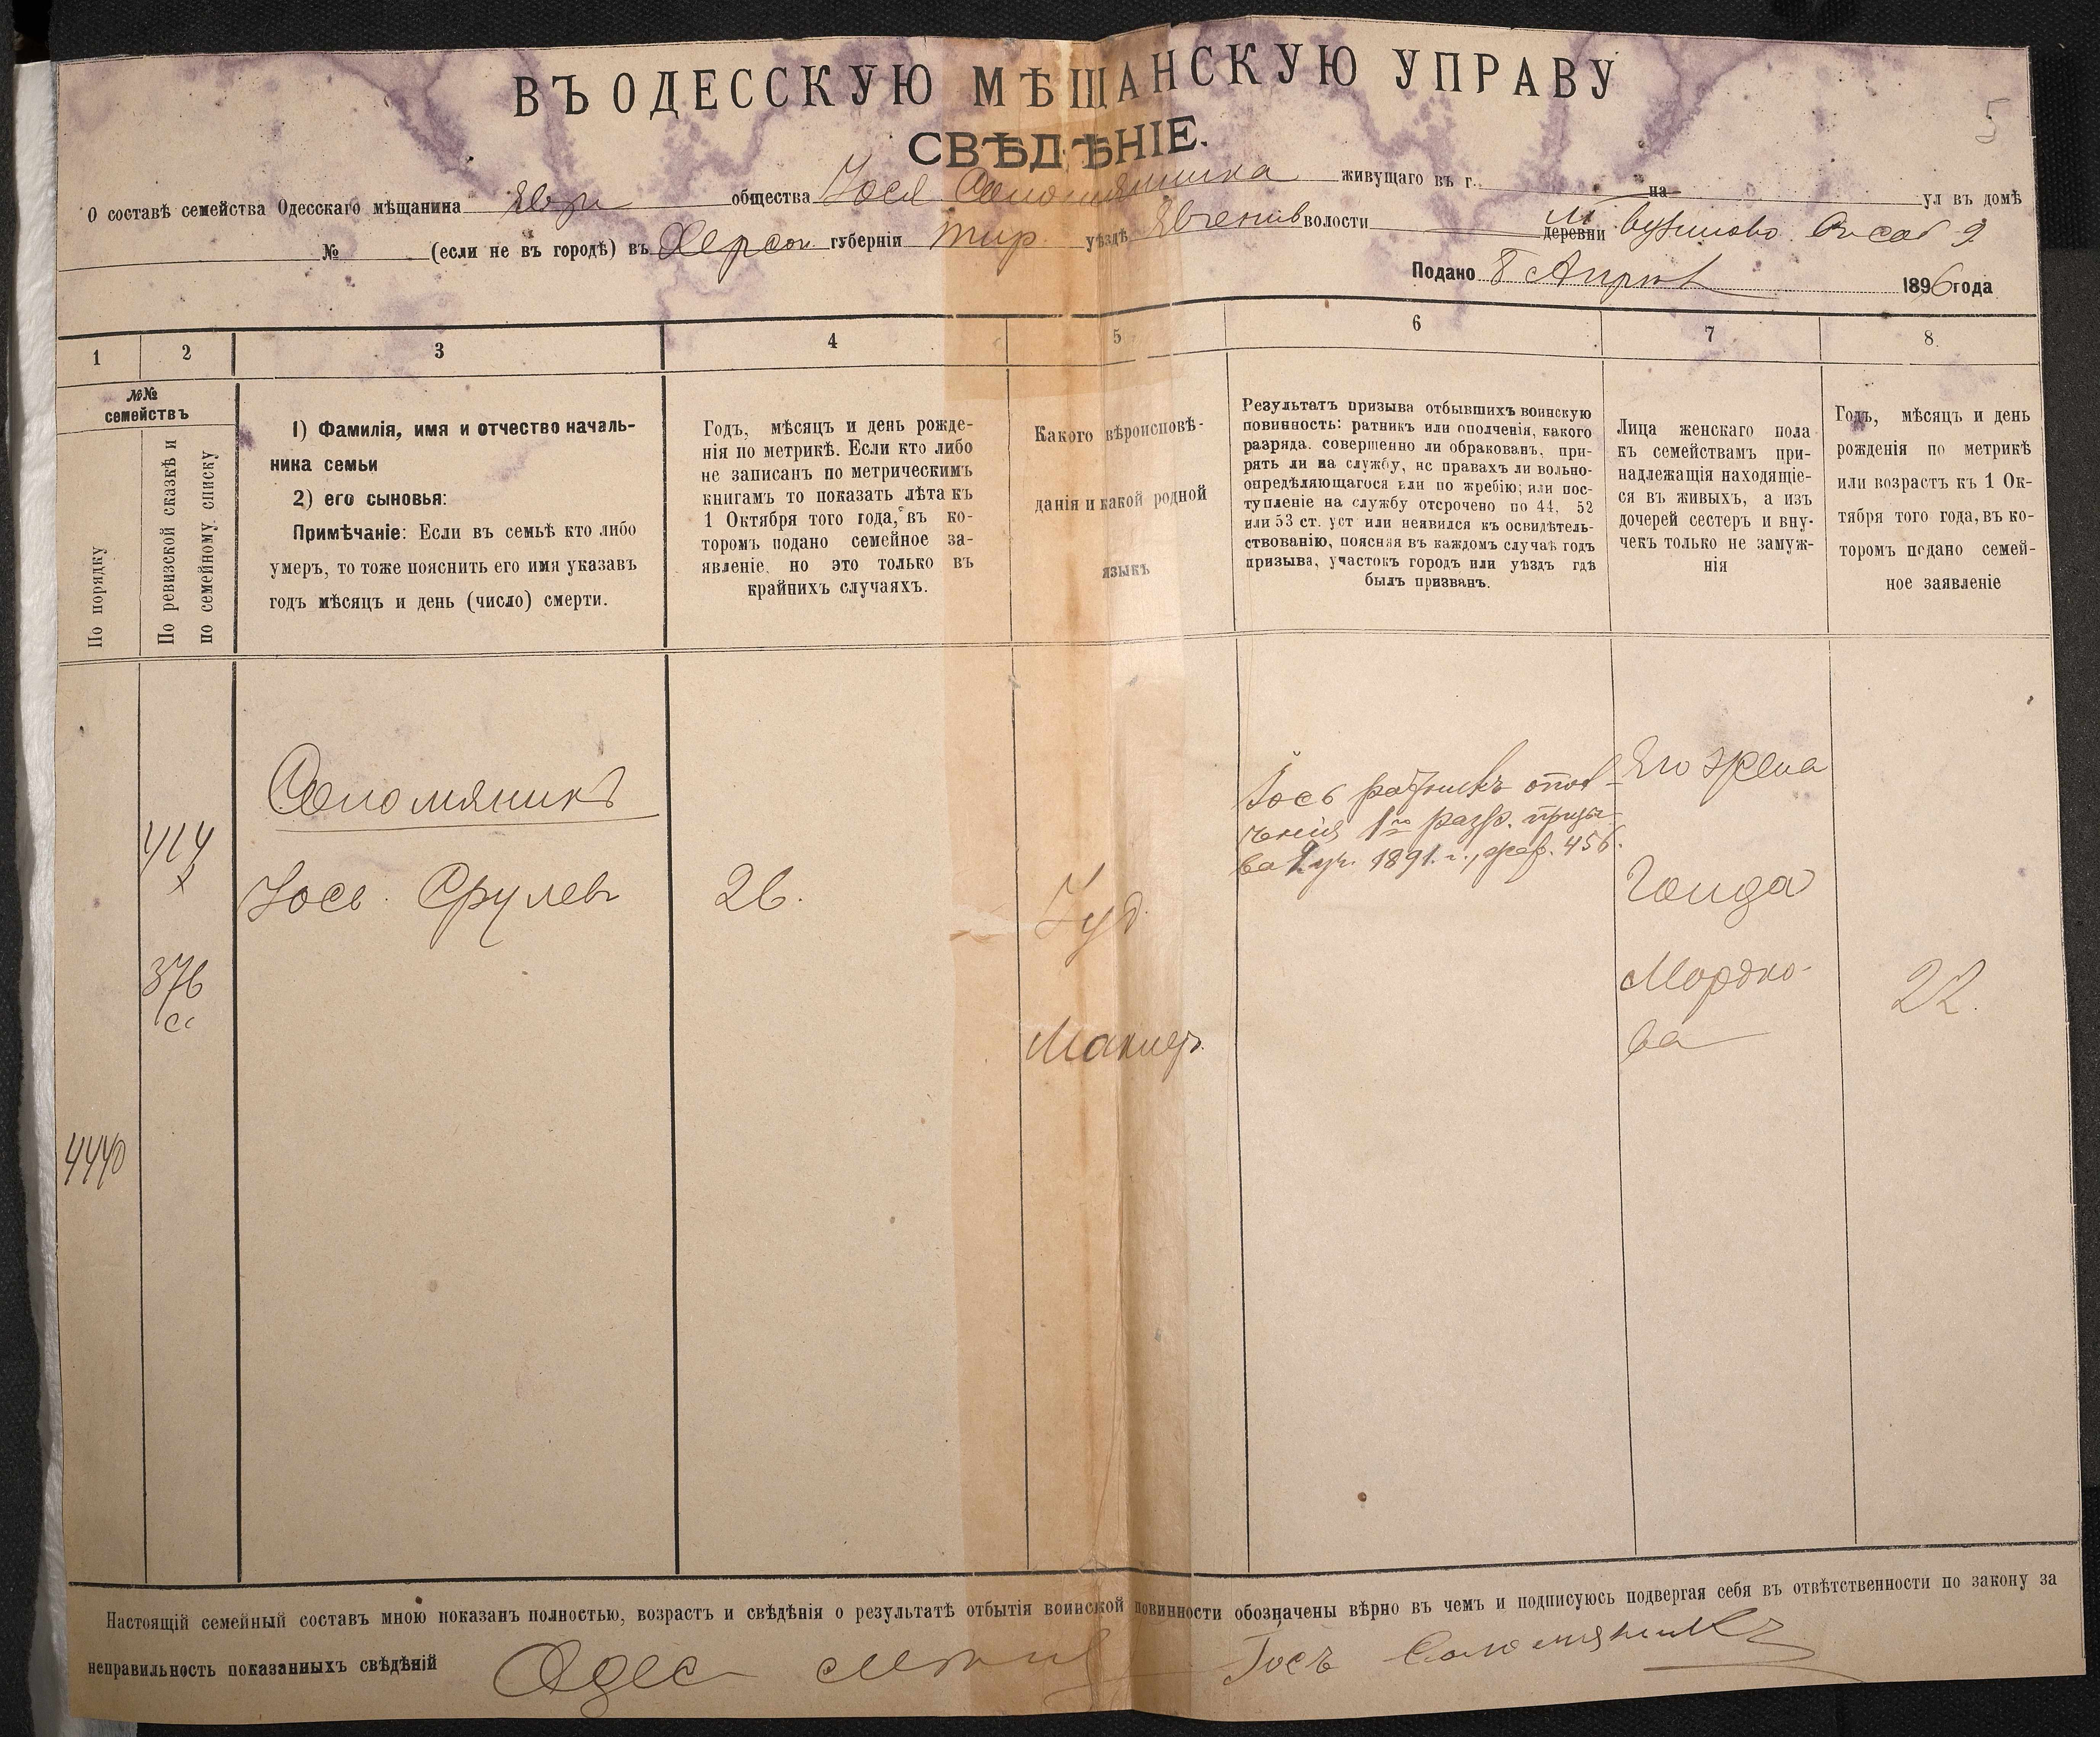 5
ВЪ ОДЕССКУЮ МѢЩАНСКУЮ УПРАВУ
СВѢДѢНІЕ.
О составѣ семейства Одесскаго мѣщанина Евр общества Іося Соломяника живущаго въ г. на ул въ домѣ
№ (если не въ городѣ) въ Херсон губерніи Тир уѣздѣ волости деревни
Подано 8 Апрѣл 1896 года
1 2 3 4 5 6 7 8
№№ семействъ
По порядку
По ревизской сказкѣ и
по семейному списку
1) Фамилія, имя и отчество началь-
ника семьи
2) его сыновья:
Примѣчаніе: Если въ семьѣ кто либо
умеръ, то тоже пояснить его имя указавъ
годъ мѣсяцъ и день (число) смерти.
Годъ, мѣсяцъ и день рожде-
нія по метрикѣ. Если кто либо
не записанъ по метрическимъ
книгамъ то показать лѣта къ
1 Октября того года, въ ко-
торомъ подано семейное за-
явленіе, но это только въ
крайнихъ случаяхъ.
Какого вѣроисповѣ-
данія и какой родной
языкъ
Результатъ призыва отбывшихъ воинскую
повинность: ратникъ или ополченія, какого
разряда. совершенно ли обракованъ, при-
рять ли на службу, нс правахъ ли вольно-
опредѣляющагося или по жребію; или пос-
тупленіе на службу отсрочено по 44, 52
или 53 ст. уст или неявился къ освидѣтель-
ствованію, поясняя въ каждомъ случаѣ годъ
призыва, участокъ городъ или уѣздъ гдѣ
былъ призванъ.
Лица женскаго пола
къ семействамъ при-
надлежащія находящіе-
ся въ живыхъ, а изъ
дочерей сестеръ и вну-
чекъ только не замуж-
нія
Годъ, мѣсяцъ и день
рожденія по метрикѣ
или возрастъ къ 1 Ок-
тября того года, въ ко-
торомъ подано семей-
ное заявленіе
Соломяникъ
414
Іось Срулев
26.
Іуд.
Іось ратникъ опол-
ченія 1го разр. призы-
ва 1 уч. 1891. г., 456.
Его жена
Гольда
376
Мордко-
ва
22.
4440
Настоящій семейный составъ мною показанъ полностью, возрастъ и свѣдѣнія о результатѣ отбытія воинской повинности обозначены вѣрно въ чемъ и подписуюсь подвергая себя въ отвѣтственности по закону за
неправильность показанныхъ свѣдѣній Одес Іось Соломяникъ